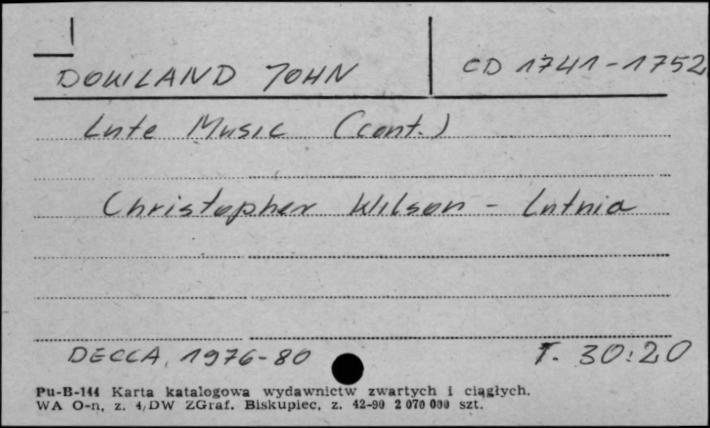 DOWLAND JOHN
CD 1741-1752
Lute Music (cont.)
Christopher Wilson - Lutnia
DECCA, 1976-80
T. 30:20
Pu-B-144 Karta katalogowa wydawnictw zwartych i ciągłych.
WA O-n, z. 4/DW ZGraf. Biskupiec, z. 42-90 2 070 000 szt.